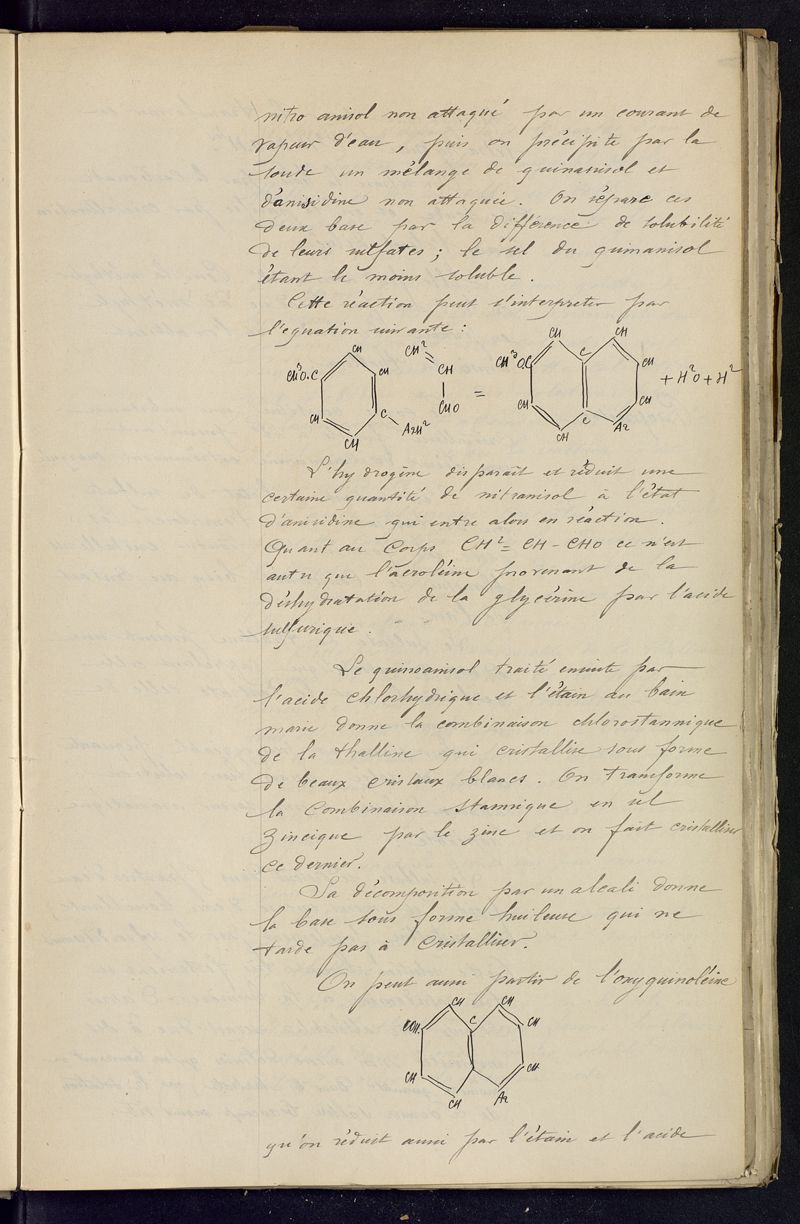 nitro anisol non attaqué par un courant de
vapeur d'eau, puis on précipite par la
soude un mélange de quinanisol et
d'anisidine non attaquée. On sépare ces
deux base par la différence de solubilité
de leurs sulfates; le sel du quinanisol
étant le moins soluble.
Cette réaction peut s'interpreter par
l'equation suivante:
CH CH² CH CH
CH³O.C CH CH CH³O.C C CH
= + H²O + H²
CH C CHO CH C CH
CH AzH² CH Az
L'hydrogène disparaît et réduit une
certaine quantité de nitranisol à l'état
d'anisidine qui entre alors en réaction.
Quant au Corps CH² = CH - CHO ce n'est
autre que l'acroléine provenant de la
déshydratation de la glycérine par l'acide
sulfurique.
Le quinoanisol traité ensuite par
l'acide chlorhydrique et l'étain au bain
marie donne la combinaison chlorostannique
de la thalline qui cristallise sous forme
de beaux cristaux blancs. On transforme
la Combinaison stannique en sel
Zincique par le zinc et on fait cristalliser
ce dernier.
La décomposition par un alcali donne
la base sous forme huileuse qui ne
tarde pas à cristalliser.
On peut aussi partir de l'oxyquinoléine
CH CH
COH. C CH
CH CH
CH Az
qu'on réduit aussi par l'étain et l'acide